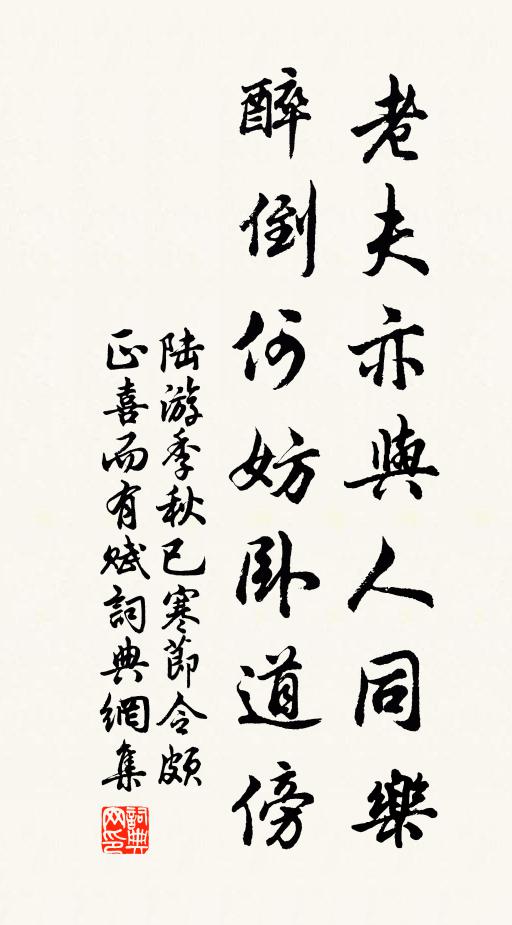 老夫亦與人同樂
醉倒何妨卧道傍
陆游季秋已寒節令頗
正喜而有赋詞典網集
詞典網印